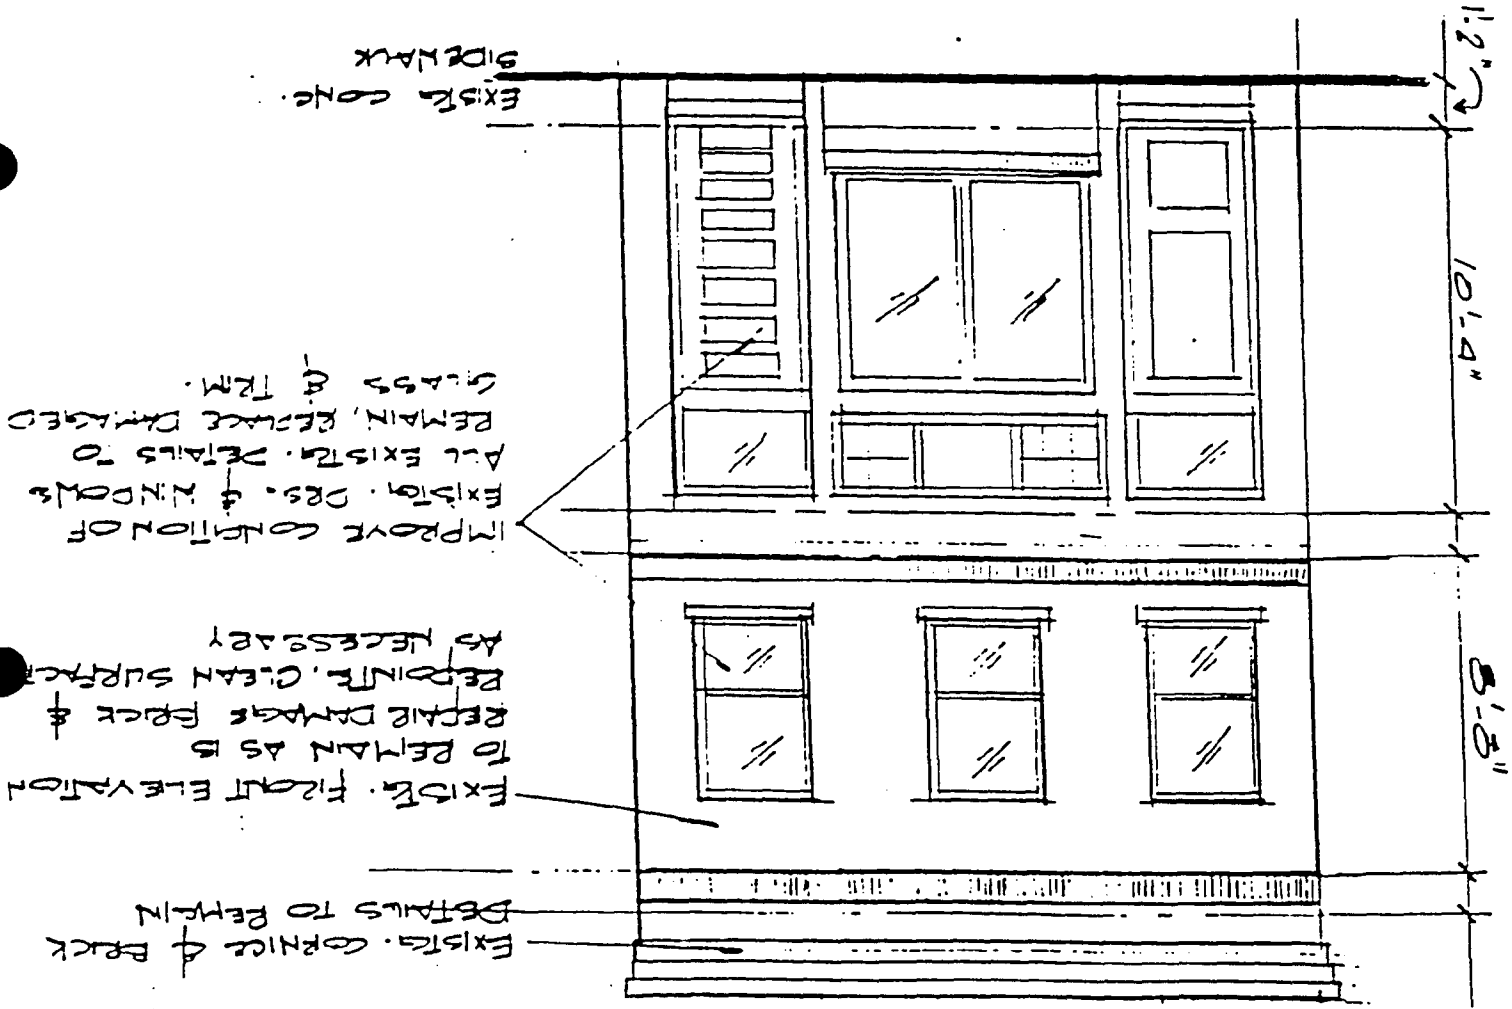 EXIST'G. CORNICE & BRICK
DETAILS TO REMAIN
EXIST'G. FRONT ELEVATION
TO REMAIN AS IS
REPAIR DAMAGE BRICK &
REPOINTE, CLEAN SURFACE
AS NECESSARY
IMPROVE CONDITION OF
EXIST'G. DRS. & WINDOWS
ALL EXIST'G. DETAILS TO
REMAIN, REPLACE DAMAGED
GLASS & TRIM.
EXIST'G CONC.
SIDEWALK
10'-0"
1'-2"